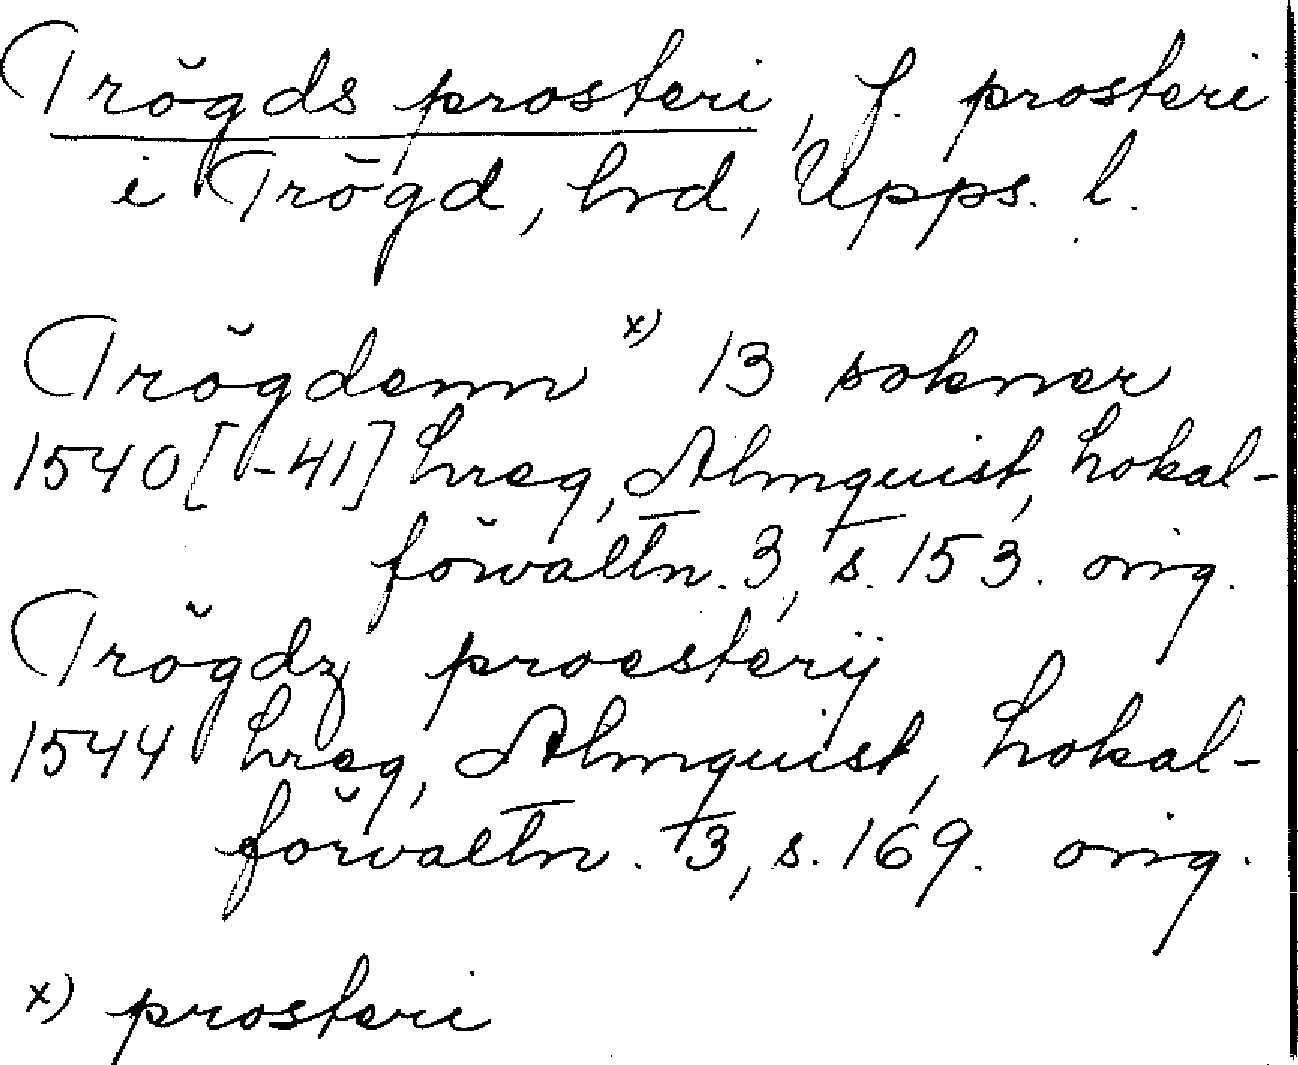 Trögds prosteri, f. prosteri
i Trögd, hrd, Upps. l.
Trögdenn x) 13 sokner
1540[-41] hreg, Almquist, Lokal-
förvaltn. 3, s. 153. orig.
Trögdz proesterij
1544 hreg, Almquist, Lokal-
förvaltn. 3, s. 169. orig.
x) prosteri